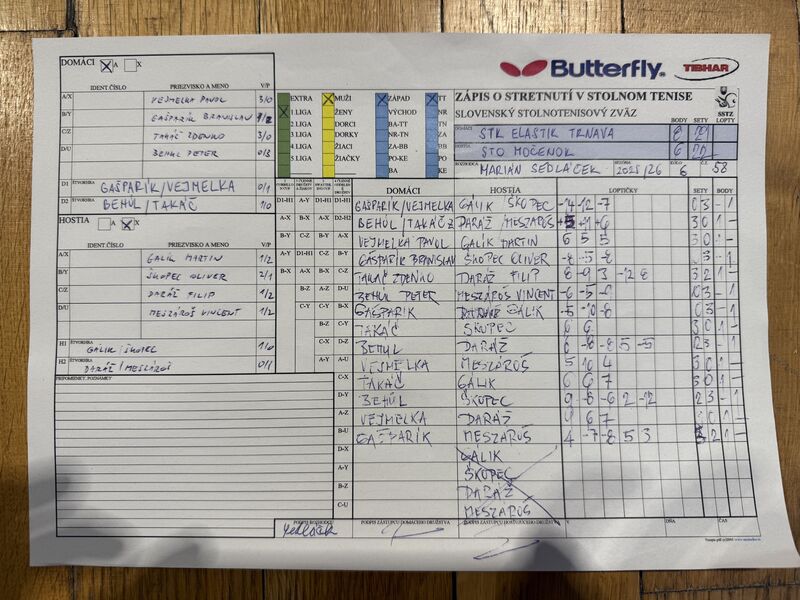 DOMÁCI A X
IDENT.ČÍSLO PRIEZVISKO A MENO V/P
A/X VEJMELKA PAVOL 3/0
B/Y GAŠPARÍK BRANISLAV 1/2
C/Z TAKÁČ ZDENKO 3/0
D/U BEHÚL PETER 0/3
D1 ŠTVORHRA GAŠPARÍK/VEJMELKA 0/1
D2 ŠTVORHRA BEHÚL/TAKÁČ 1/0
HOSTIA A X
IDENT.ČÍSLO PRIEZVISKO A MENO V/P
A/X GALIK MARTIN 1/2
B/Y ŠKOPEC OLIVER 2/1
C/Z DARÁŽ FILIP 1/2
D/U MESZÁROŠ VINCENT 1/2
H1 ŠTVORHRA GALIK/ŠKOPEC 1/0
H2 ŠTVORHRA DARÁŽ/MESZÁROŠ 0/1
PRIPOMIENKY, POZNÁMKY
EXTRA MUŽI ZÁPAD TT
1.LIGA ŽENY VÝCHOD NR
2.LIGA DORCI BA-TT ZA
3.LIGA DORKY NR-TN BB
4.LIGA ŽIACI ZA-BB PO
5.LIGA ŽIAČKY PO-KE KE
BA BA
Butterfly TIBHAR
ZÁPIS O STRETNUTÍ V STOLNOM TENISE
SLOVENSKÝ STOLNOTENISOVÝ ZVÄZ
SSTZ
BODY SETY LOPTY
DOMÁCI STK ELASTIK TRNAVA 8
HOSTIA STO MOČENOK 6
ROZHODCA MARIÁN SEDLÁČEK SEZÓNA 2025/26 KOLO 6 Č. 58
DOMÁCI HOSTIA LOPTIČKY SETY BODY
D1-H1 A-Y D1-H1 D1-H1 GAŠPARÍK/VEJMELKA GALIK ŠKOPEC -14 -12 -7 0 3 - 1
A-X B-X D2-H2 BEHÚL/TAKÁČ DARÁŽ/MESZÁROŠ 3 0 1 -
B-Y C-Z A-X VEJMELKA PAVOL GALIK MARTIN 6 5 5 3 0 1 -
A-Y D1-H1 C-Z B-Y GAŠPARÍK BRANISLAV ŠKOPEC OLIVER -8 -5 -8 0 3 - 1
B-X A-X C-Z TAKÁČ ZDENKO DARÁŽ FILIP 8 -9 3 -12 8 3 2 1 -
B-Z A-Z D-U BEHÚL PETER MESZÁROŠ VINCENT -6 -5 -8 0 3 - 1
C-Y B-X GAŠPARÍK GALIK -5 -10 -8 0 3 - 1
B-Z C-Y TAKÁČ ŠKOPEC 6 6 3 0 1 -
C-X D-Z BEHÚL DARÁŽ 6 -8 -8 5 -5 2 3 - 1
A-Y A-U VEJMELKA MESZÁROŠ 5 10 4 3 0 1 -
C-X TAKÁČ GALIK 6 6 7 3 0 1 -
D-Y BEHÚL ŠKOPEC 9 -8 -6 2 -12 2 3 - 1
A-Z VEJMELKA DARÁŽ 9 6 7 3 0 1 -
B-U GAŠPARÍK MESZÁROŠ 4 -7 -8 5 3 3 2 1 -
D-X GALIK
A-Y ŠKOPEC
B-Z DARÁŽ
C-U MESZÁROŠ
PODPIS ROZHODCU PODPIS ZÁSTUPCU DOMÁCEHO DRUŽSTVA PODPIS ZÁSTUPCU HOSŤUJÚCEHO DRUŽSTVA V DŇA ČAS